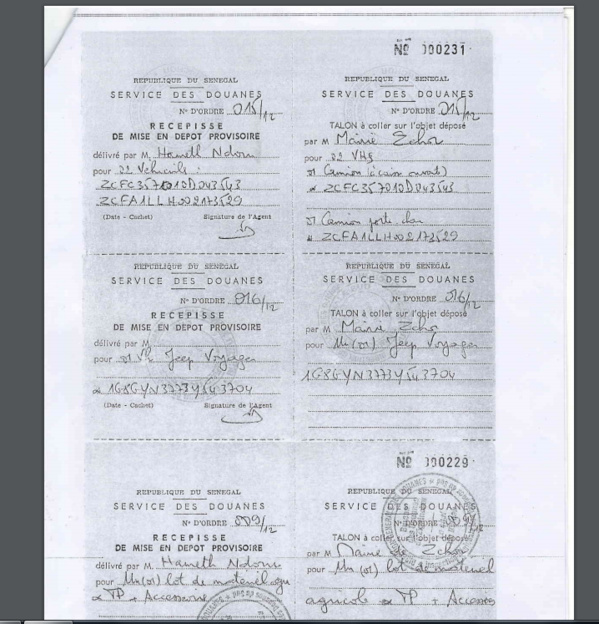 Nº 000231
REPUBLIQUE DU SENEGAL
SERVICE DES DOUANES
Nº D'ORDRE 015/12
RECEPISSE
DE MISE EN DEPOT PROVISOIRE
délivré par M Hameth Ndom
pour 02 Vehicule :
ZCFC357010D043543
ZCFA1LLH002173529
(Date - Cachet) Signature de l'Agent
REPUBLIQUE DU SENEGAL
SERVICE DES DOUANES
Nº D'ORDRE 015/12
TALON à coller sur l'objet déposé
par M Mairie
pour 02 VHS
01 Camion
ZCFC357010D043543
01 Camion porte
ZCFA1LLH002173529
REPUBLIQUE DU SENEGAL
SERVICE DES DOUANES
Nº D'ORDRE 016/12
RECEPISSE
DE MISE EN DEPOT PROVISOIRE
délivré par M
pour 01 Vh Jeep Voyager
1G8GYN3773Y543704
(Date - Cachet) Signature de l'Agent
REPUBLIQUE DU SENEGAL
SERVICE DES DOUANES
Nº D'ORDRE 016/12
TALON à coller sur l'objet déposé
par M Mairie
pour Un (01) Jeep Voyager
1G8GYN3773Y543704
Nº 000229
REPUBLIQUE DU SENEGAL
SERVICE DES DOUANES
Nº D'ORDRE 009/12
RECEPISSE
DE MISE EN DEPOT PROVISOIRE
délivré par M Hameth Ndom
pour Un (01) lot de materiel
TP + Accessoire
REPUBLIQUE DU SENEGAL
SERVICE DES DOUANES
Nº D'ORDRE 009/12
TALON à coller sur l'objet déposé
par M Mairie de
pour Un (01) lot de materiel
agricole TP + Accessoires